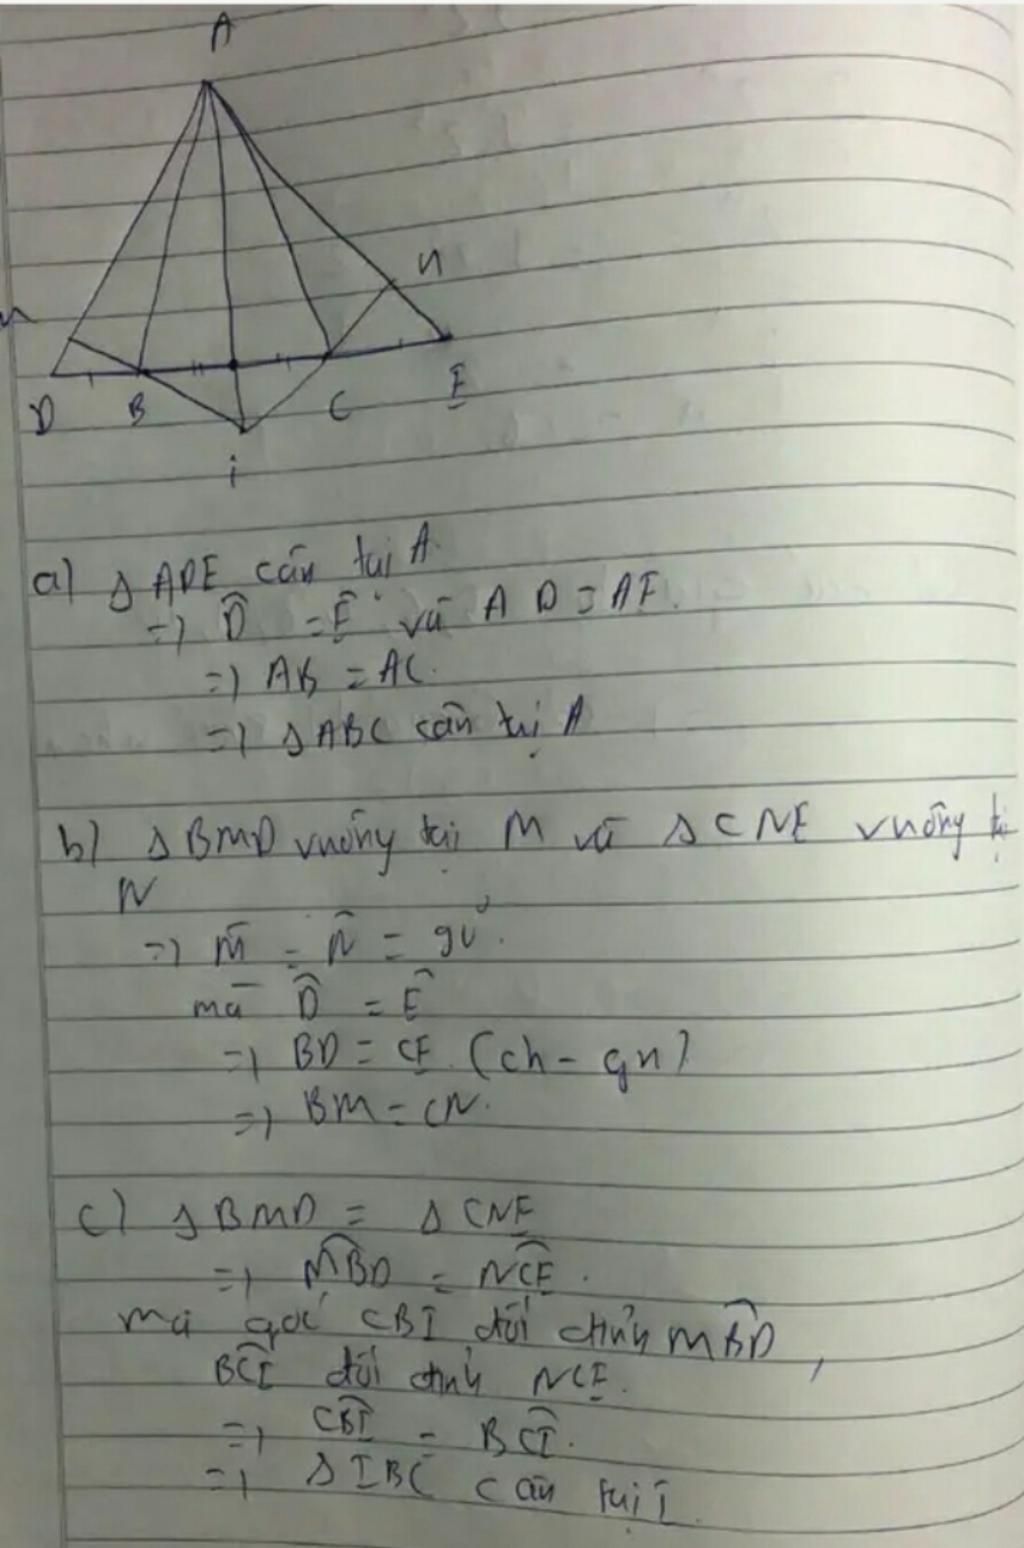 A
N
M
D B C E
i
a) Δ ADE cân tại A.
=> D̂ = Ê và AD = AE.
=> AB = AC.
=> Δ ABC cân tại A
b) Δ BMD vuông tại M và Δ CNE vuông tại
N
=> M̂ = N̂ = 90°.
mà D̂ = Ê
=> BD = CE (ch - gn)
=> BM = CN.
c) Δ BMD = Δ CNE
=> MBD = NCE.
mà góc CBI đối đỉnh MBD,
BCI đối đỉnh NCE.
=> CBI = BCI.
=> Δ IBC cân tại I.